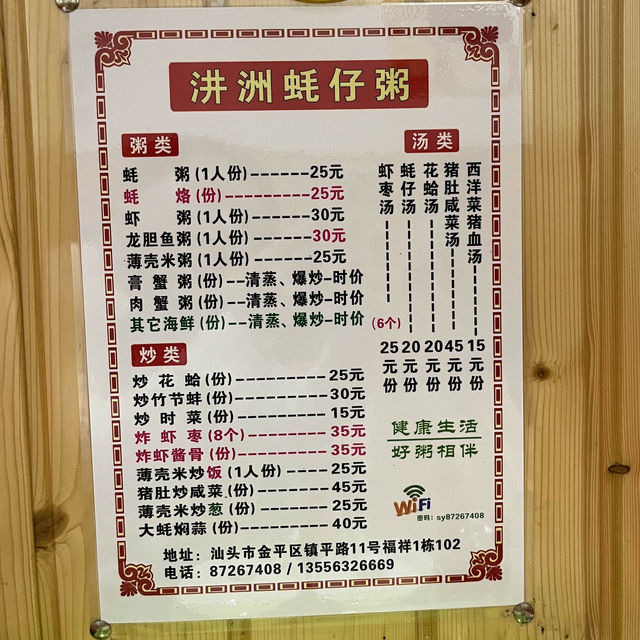 汫洲蚝仔粥
粥类
蚝 粥(1人份)-------25元
蚝 烙(份)----------25元
虾 粥(1人份)-------30元
龙胆鱼粥(1人份)-------30元
薄壳米粥(1人份)-------25元
膏蟹粥(份)--清蒸、爆炒-时价
肉蟹粥(份)--清蒸、爆炒-时价
其它海鲜(份)--清蒸、爆炒-时价
汤类
虾枣汤(6个)25元份
蚝仔汤20元份
花蛤汤20元份
猪肚咸菜汤45元份
西洋菜猪血汤15元份
炒类
炒花蛤(份)----------25元
炒竹节蚌(份)----------30元
炒时菜(份)----------15元
炸虾枣(8个)---------35元
炸虾酱骨(份)---------35元
薄壳米炒饭(1人份)-----25元
猪肚炒咸菜(份)--------45元
薄壳米炒葱(份)--------25元
大蚝焖蒜(份)---------40元
健康生活
好粥相伴
WiFi
密码:sy87267408
地址:汕头市金平区镇平路11号福祥1栋102
电话:87267408 / 13556326669